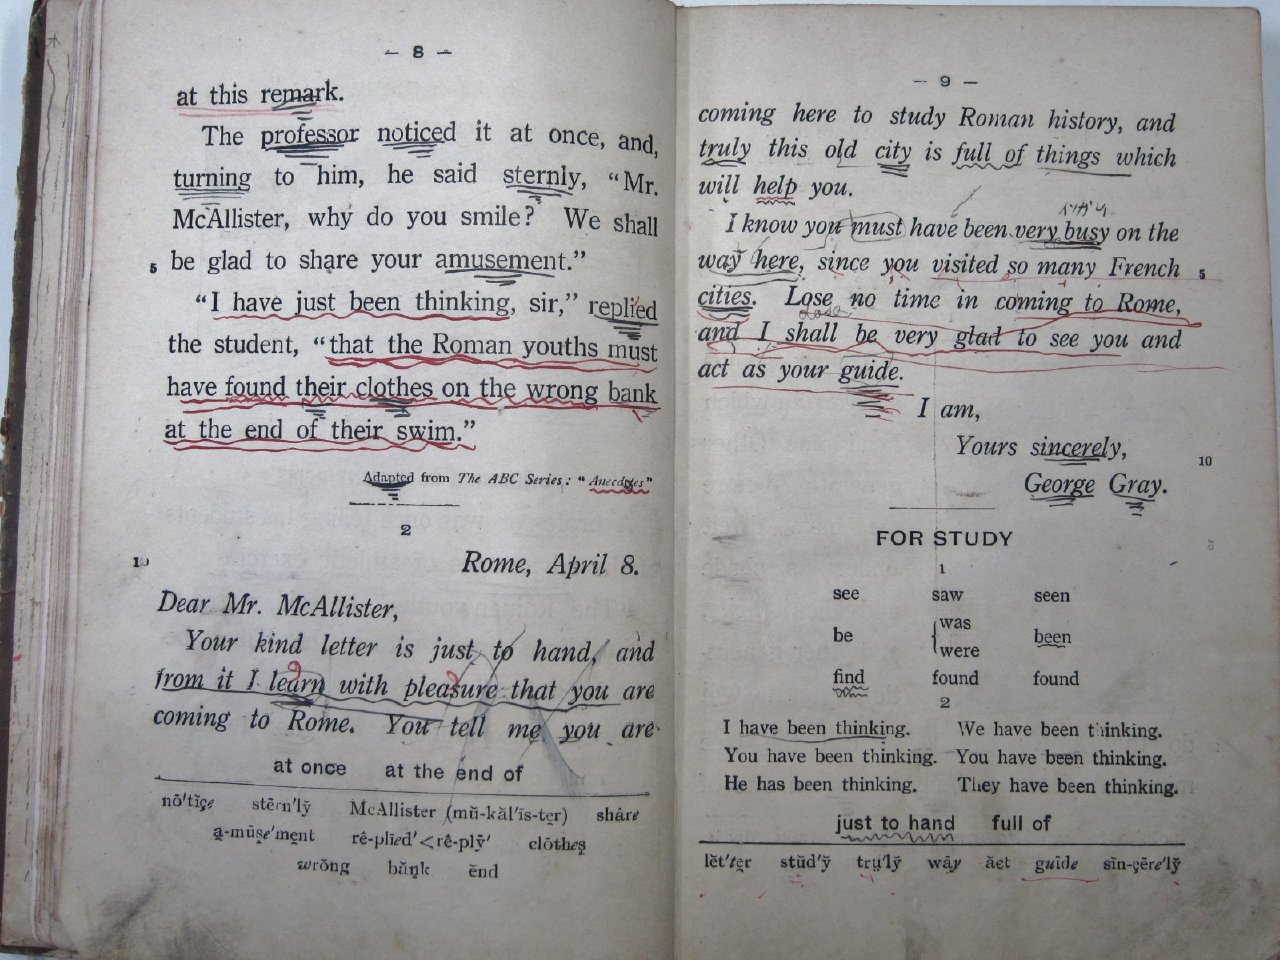 — 8 —
at this remark.
The professor noticed it at once, and,
turning to him, he said sternly, “Mr.
McAllister, why do you smile? We shall
5 be glad to share your amusement.”
“I have just been thinking, sir,” replied
the student, “that the Roman youths must
have found their clothes on the wrong bank
at the end of their swim.”
Adapted from The ABC Series: “Anecdotes”
2
10 Rome, April 8.
Dear Mr. McAllister,
Your kind letter is just to hand, and
from it I learn with pleasure that you are
coming to Rome. You tell me you are
at once at the end of
nō′tĭçe stērn′lў McAllister (mŭ-kăl′ĭs-tẽr) shâre
a̤-mūṣe′ment rê-plīed′<rê-plȳ′ clōtheṣ
wrŏng băṉk ĕnd
— 9 —
coming here to study Roman history, and
truly this old city is full of things which
will help you.
I know you must have been very busy on the
way here, since you visited so many French 5
cities. Lose no time in coming to Rome,
and I shall be very glad to see you and
act as your guide.
I am,
Yours sincerely, 10
George Gray.
FOR STUDY
1
see saw seen
be {was were been
find found found
2
I have been thinking. We have been thinking.
You have been thinking. You have been thinking.
He has been thinking. They have been thinking.
just to hand full of
lĕt′tẽr stŭd′ў trṳ′lў wāy ăct guīde sĭn-çēre′lў